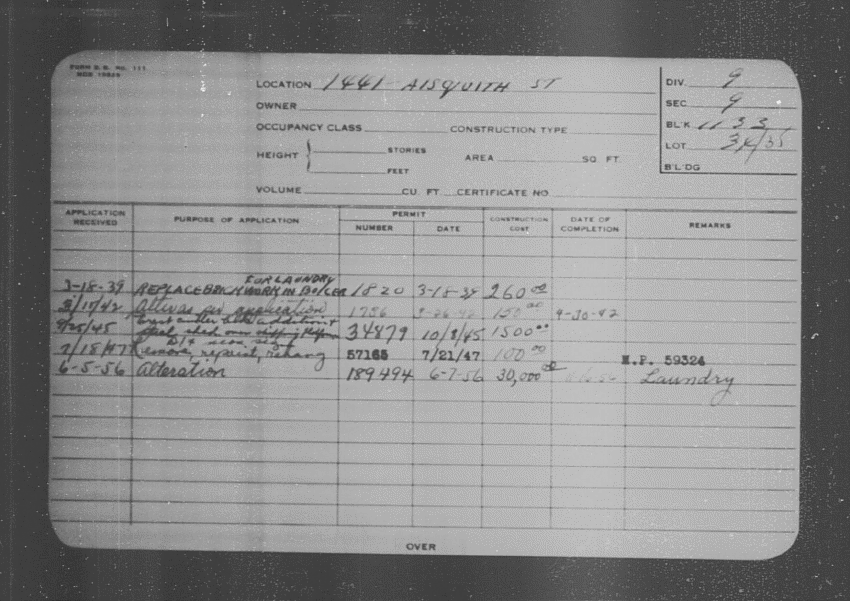 FORM B. E. NO. 111
LOCATION 1441 AISQUITH ST
DIV. 9
OWNER
SEC 9
OCCUPANCY CLASS CONSTRUCTION TYPE
BL'K 1133
HEIGHT } STORIES FEET AREA SQ FT.
LOT 34/35
B'L'DG
VOLUME CU FT. CERTIFICATE NO
APPLICATION RECEIVED PURPOSE OF APPLICATION PERMIT NUMBER DATE CONSTRUCTION COST DATE OF COMPLETION REMARKS
FOR LAUNDRY
3-18-39 REPLACE BRICKWORK IN BOILER 1820 3-18-39 260.00
3/17/42 per application 1756 3-26-42 150.00 9-30-42
Erect cinder block addition &
9/25/45 steel shed over shipping 34879 10/3/45 1500.00
D/F neon sign
7/18/47 Remove, repaint, rehang 57165 7/21/47 100.00 M.P. 59324
6-5-56 Alteration 189494 6-7-56 30,000.00 Laundry
OVER